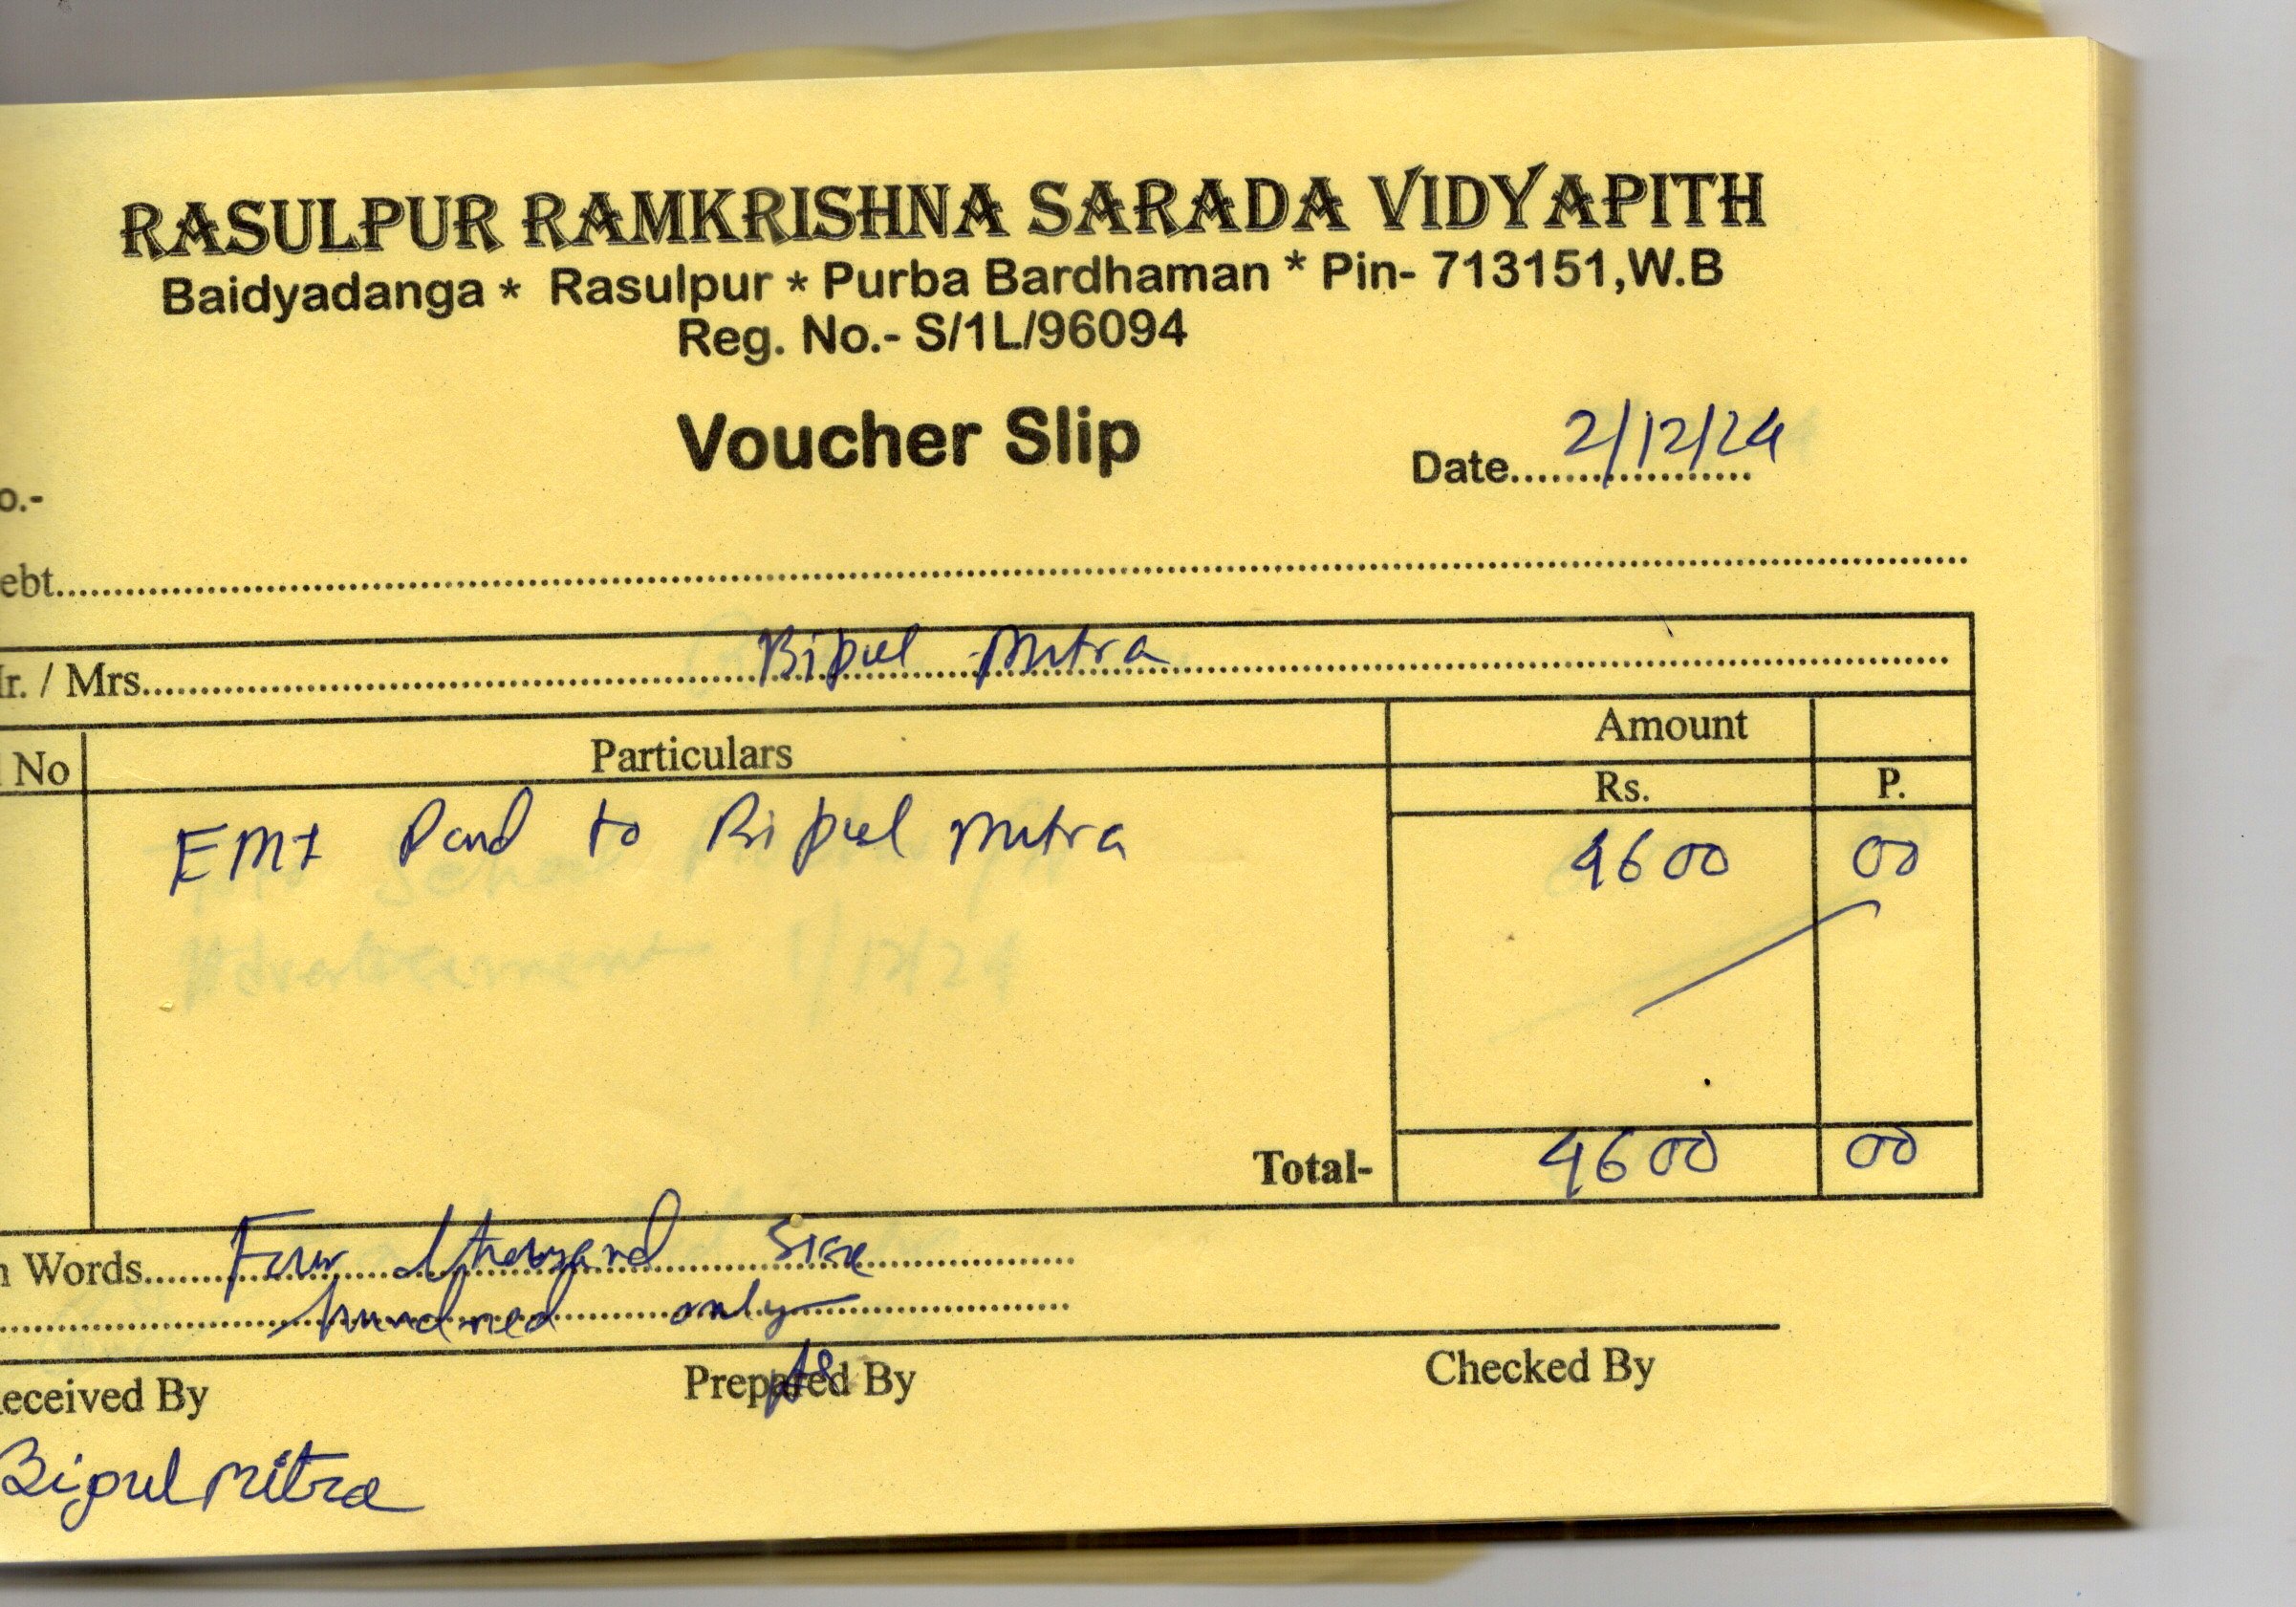 RASULPUR RAMKRISHNA SARADA VIDYAPITH
Baidyadanga * Rasulpur * Purba Bardhaman * Pin- 713151,W.B
Reg. No.- S/1L/96094
Voucher Slip
Date 2/12/24
o.-
ebt
Ir. / Mrs. Bipul Mitra
No Particulars Amount
Rs. P.
EMI Paid to Bipul Mitra 4600 00
Total- 4600 00
n Words Four thousand Six
hundred only
eceived By Prepared By Checked By
Bipul Mitra